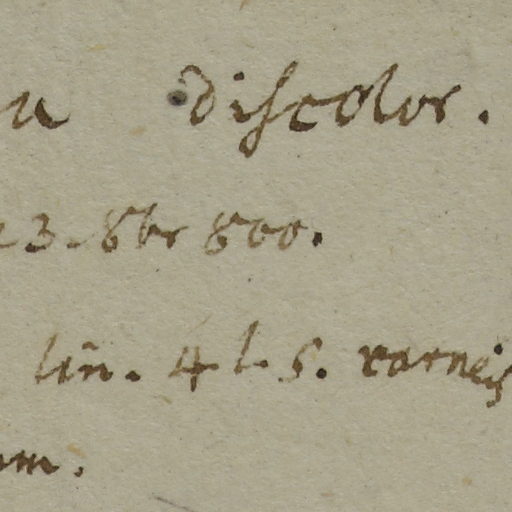 a discolor.
23. 8br 800.
lin. 4 l. 5. carneis
um.